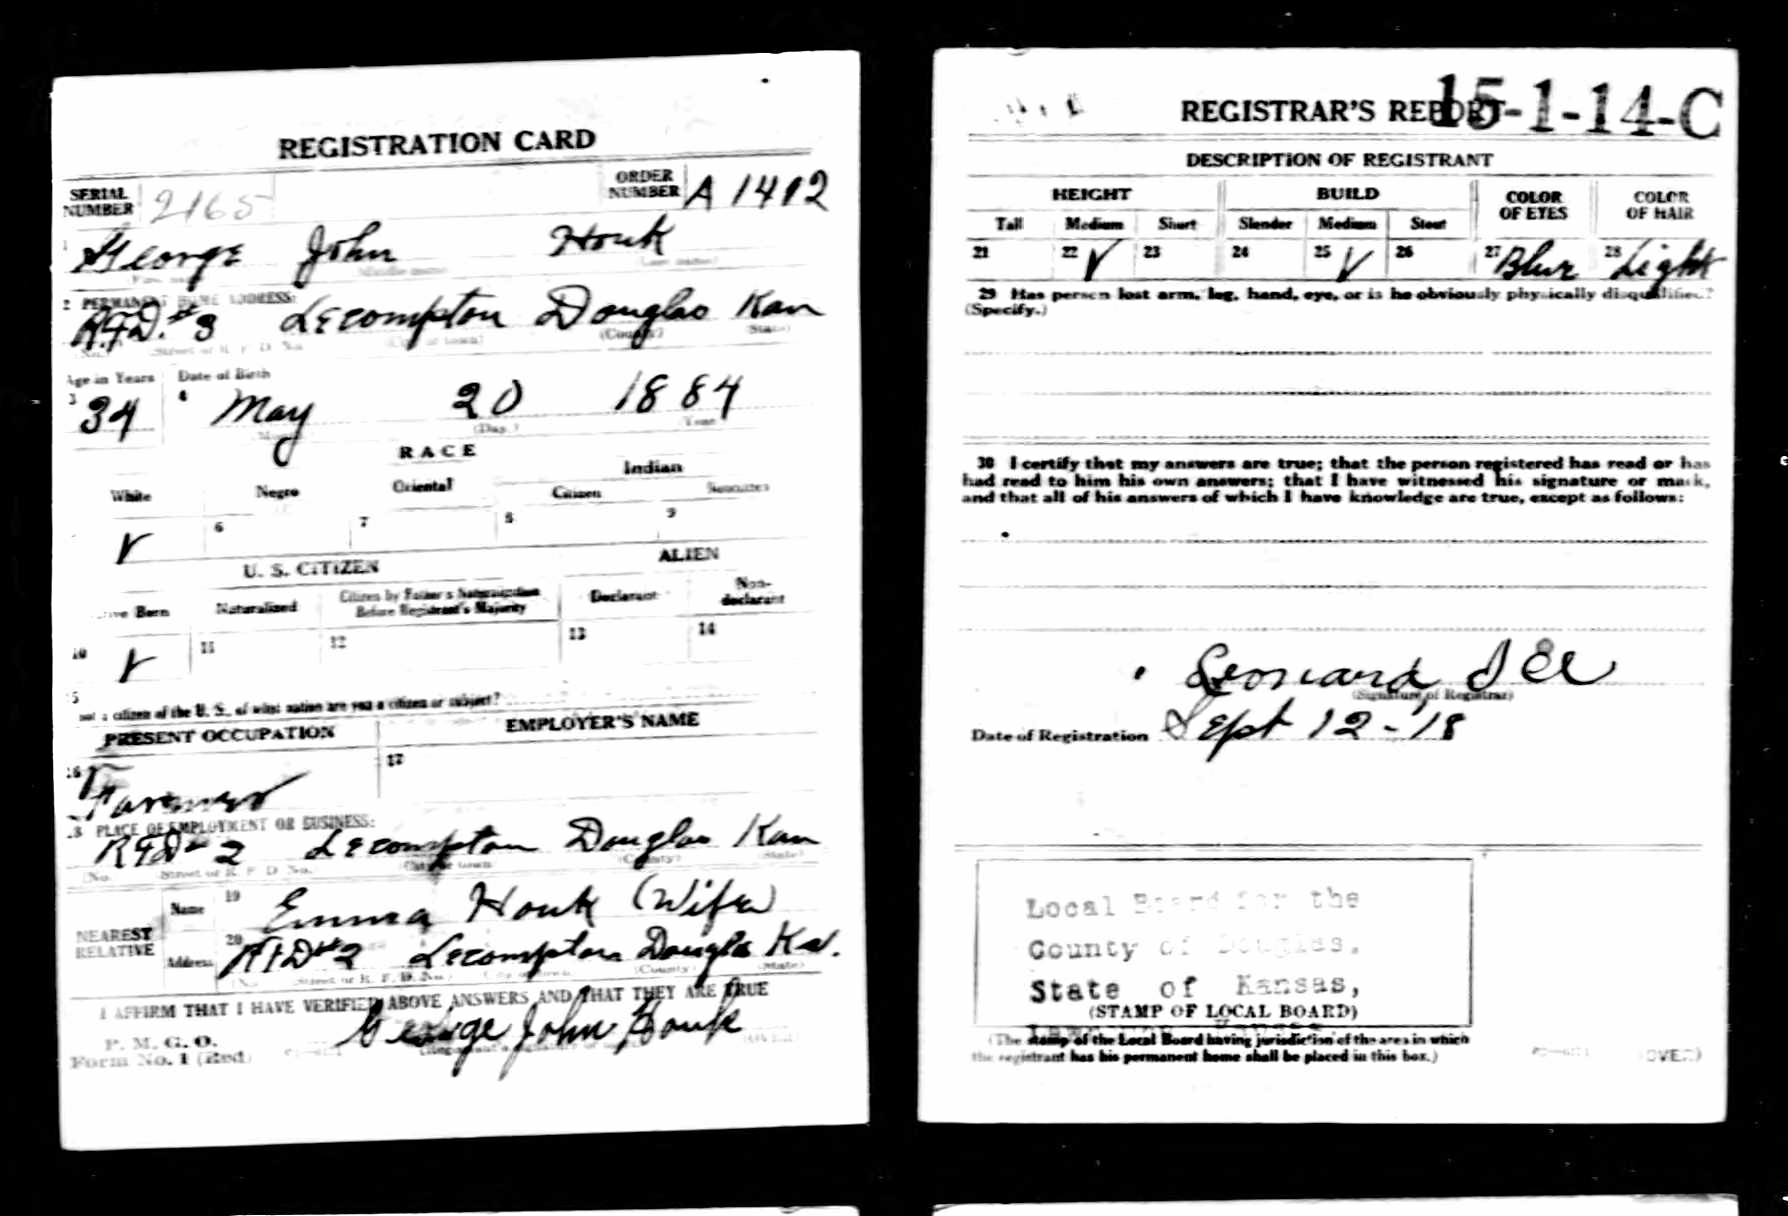 REGISTRATION CARD
SERIAL NUMBER 2165 ORDER NUMBER A 1412
1 George John Houk
(Last name)
2 PERMANENT HOME ADDRESS:
R.F.D. #3 Lecompton Douglas Kan
(No.) (Street or R. F. D. No.) (City or town) (County) (State)
Age in Years Date of Birth
3 34 4 May 20 1884
(Day.) (Year.)
RACE
White Negro Oriental Indian
Citizen Noncitizen
V 6 7 8 9
U. S. CITIZEN ALIEN
Native Born Naturalized Citizen by Father's Naturalization Before Registrant's Majority Declarant Non-declarant
10 V 11 12 13 14
15
not a citizen of the U. S., of what nation are you a citizen or subject?
PRESENT OCCUPATION EMPLOYER'S NAME
16 Farmer 17
18 PLACE OF EMPLOYMENT OR BUSINESS:
RFD # 2 Lecompton Douglas Kan
(No.) (Street or R. F. D. No.) (City or town) (County) (State)
NEAREST RELATIVE
Name 19 Emma Houk (Wife)
Address 20 RFD #2 Lecompton Douglas
(No.) (Street or R. F. D. No.) (City or town) (County) (State)
I AFFIRM THAT I HAVE VERIFIED ABOVE ANSWERS AND THAT THEY ARE TRUE
P. M. G. O.
Form No. 1 (Red) George John Houk
(OVER)
15-1-14-C
REGISTRAR'S REPORT
DESCRIPTION OF REGISTRANT
HEIGHT BUILD COLOR OF EYES COLOR OF HAIR
Tall Medium Short Slender Medium Stout
21 22 V 23 24 25 V 26 27 Blue 28 Light
29 Has person lost arm, leg, hand, eye, or is he obviously physically disqualified?
(Specify.)
30 I certify that my answers are true; that the person registered has read or has
had read to him his own answers; that I have witnessed his signature or mark,
and that all of his answers of which I have knowledge are true, except as follows:
Leonard
(Signature of Registrar)
Date of Registration Sept 12-18
Local Board for the
County of Douglas,
State of Kansas,
(STAMP OF LOCAL BOARD)
(The stamp of the Local Board having jurisdiction of the area in which
the registrant has his permanent home shall be placed in this box.)
(OVER)